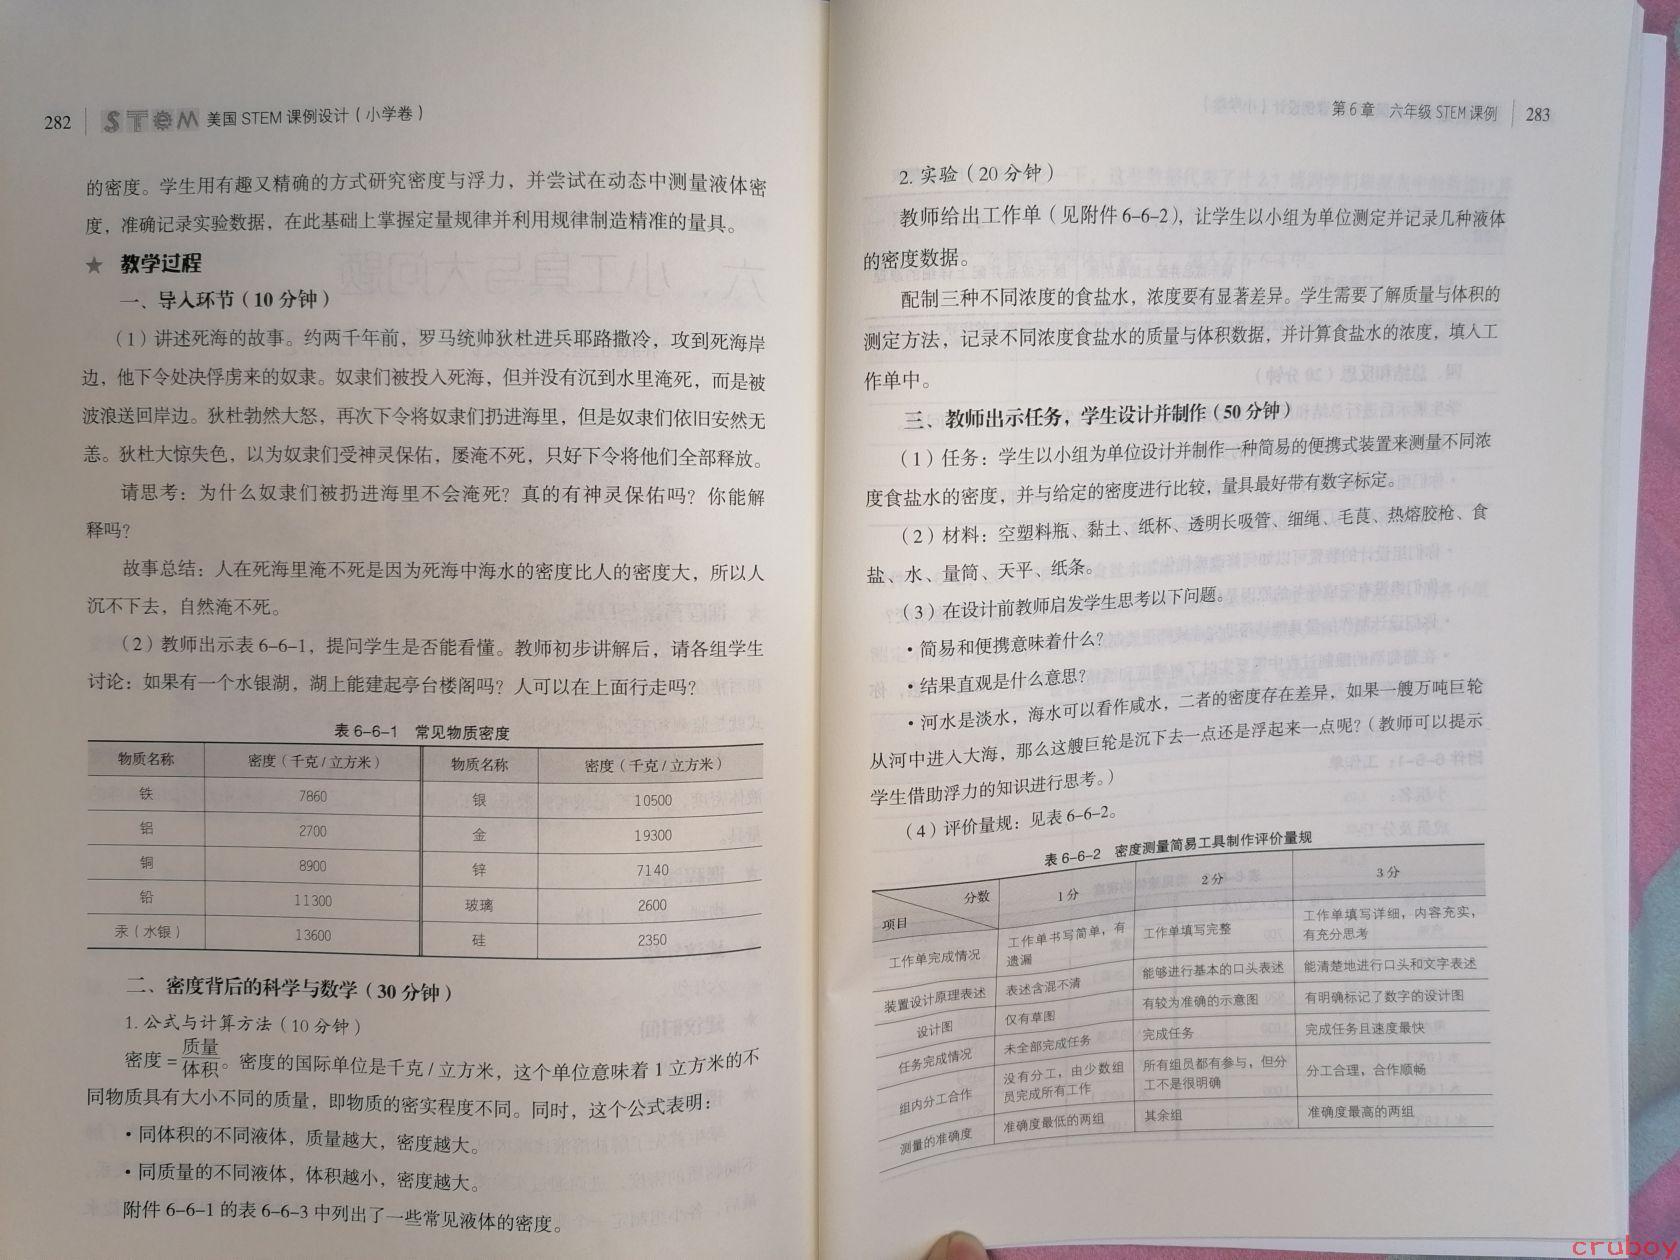 282 STEM 美国 STEM 课例设计（小学卷）
的密度。学生用有趣又精确的方式研究密度与浮力，并尝试在动态中测量液体密
度，准确记录实验数据，在此基础上掌握定量规律并利用规律制造精准的量具。
★ 教学过程
一、导入环节（10 分钟）
（1）讲述死海的故事。约两千年前，罗马统帅狄杜进兵耶路撒冷，攻到死海岸
边，他下令处决俘虏来的奴隶。奴隶们被投入死海，但并没有沉到水里淹死，而是被
波浪送回岸边。狄杜勃然大怒，再次下令将奴隶们扔进海里，但是奴隶们依旧安然无
恙。狄杜大惊失色，以为奴隶们受神灵保佑，屡淹不死，只好下令将他们全部释放。
请思考：为什么奴隶们被扔进海里不会淹死？真的有神灵保佑吗？你能解
释吗？
故事总结：人在死海里淹不死是因为死海中海水的密度比人的密度大，所以人
沉不下去，自然淹不死。
（2）教师出示表 6-6-1，提问学生是否能看懂。教师初步讲解后，请各组学生
讨论：如果有一个水银湖，湖上能建起亭台楼阁吗？人可以在上面行走吗？
表 6-6-1 常见物质密度
物质名称 密度（千克 / 立方米） 物质名称 密度（千克 / 立方米）
铁 7860 银 10500
铝 2700 金 19300
铜 8900 锌 7140
铅 11300 玻璃 2600
汞（水银） 13600 硅 2350
二、密度背后的科学与数学（30 分钟）
1. 公式与计算方法（10 分钟）
密度 = 质量/体积。密度的国际单位是千克 / 立方米，这个单位意味着 1 立方米的不
同物质具有大小不同的质量，即物质的密实程度不同。同时，这个公式表明：
• 同体积的不同液体，质量越大，密度越大。
• 同质量的不同液体，体积越小，密度越大。
附件 6-6-1 的表 6-6-3 中列出了一些常见液体的密度。
第 6 章 六年级 STEM 课例 283
2. 实验（20 分钟）
教师给出工作单（见附件 6-6-2），让学生以小组为单位测定并记录几种液体
的密度数据。
配制三种不同浓度的食盐水，浓度要有显著差异。学生需要了解质量与体积的
测定方法，记录不同浓度食盐水的质量与体积数据，并计算食盐水的浓度，填入工
作单中。
三、教师出示任务，学生设计并制作（50 分钟）
（1）任务：学生以小组为单位设计并制作一种简易的便携式装置来测量不同浓
度食盐水的密度，并与给定的密度进行比较，量具最好带有数字标定。
（2）材料：空塑料瓶、黏土、纸杯、透明长吸管、细绳、毛莨、热熔胶枪、食
盐、水、量筒、天平、纸条。
（3）在设计前教师启发学生思考以下问题。
• 简易和便携意味着什么？
• 结果直观是什么意思？
• 河水是淡水，海水可以看作咸水，二者的密度存在差异，如果一艘万吨巨轮
从河中进入大海，那么这艘巨轮是沉下去一点还是浮起来一点呢？（教师可以提示
学生借助浮力的知识进行思考。）
（4）评价量规：见表 6-6-2。
表 6-6-2 密度测量简易工具制作评价量规
项目 分数 1 分 2 分 3 分
工作单完成情况 工作单书写简单，有遗漏 工作单填写完整 工作单填写详细，内容充实，有充分思考
装置设计原理表述 表述含混不清 能够进行基本的口头表述 能清楚地进行口头和文字表述
设计图 仅有草图 有较为准确的示意图 有明确标记了数字的设计图
任务完成情况 未全部完成任务 完成任务 完成任务且速度最快
组内分工合作 没有分工，由少数组员完成所有工作 所有组员都有参与，但分工不是很明确 分工合理，合作顺畅
测量的准确度 准确度最低的两组 其余组 准确度最高的两组
cruboy